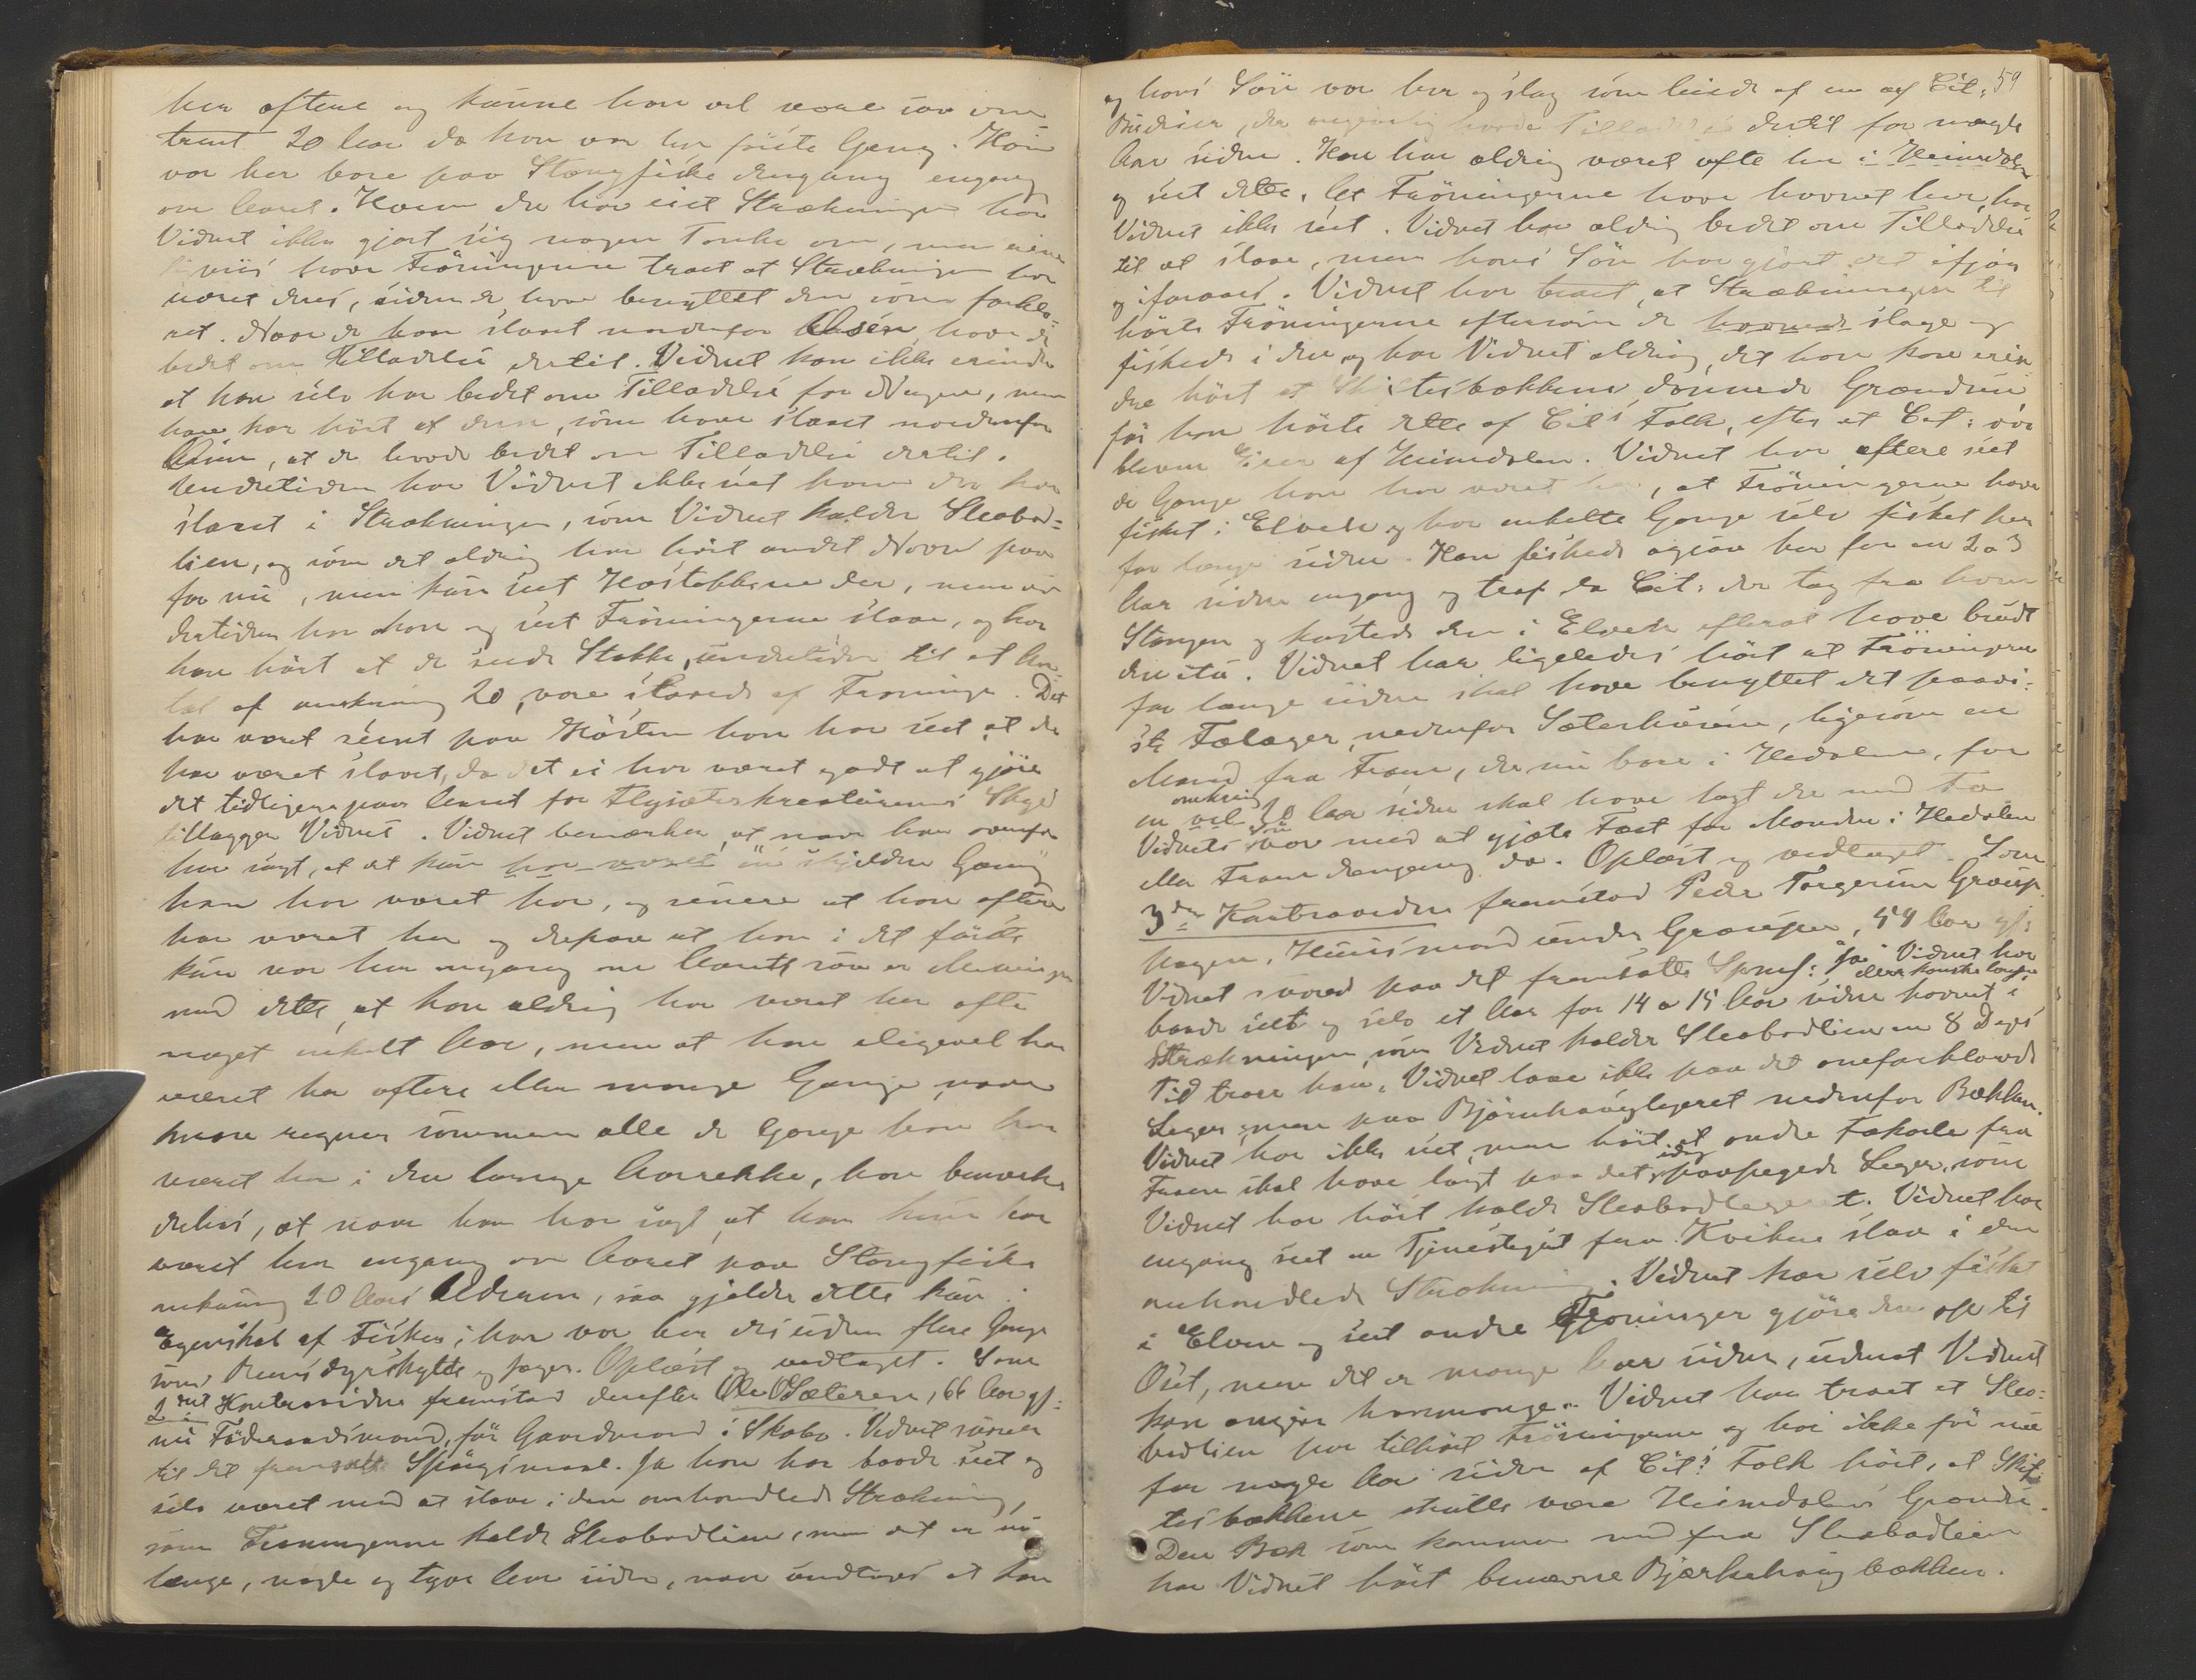 her oftere og kunne han vel være saa om-
trent 20 Aar da han var her første Gang. Han
var her bare paa Stangfiske dengang engang
om Aaret. Hvem der har eiet Strækningen har
Vidnet ikke gjort sig nogen Tanke om, men
viis have Fröningerne troet at Strækningen har
været deres, siden de have benyttet den som forkla-
ret. Naar de have slaaet nordenfor Aasen, have de
bedt om Tilladelse dertil. Vidnet kan ikke erindre
at han selv har bedt om Tilladelse fra Nogen, men
han har hört af dem, som have slaaet nordenfor
Aasen, at de havde bedt om Tilladelse dertil.
Undertiden har Vidnet ikke seet hvem der har
slaaet i Strækningen, som Vidnet kalder Sleabod-
lien, og som det aldrig har hört andet Navn paa
før nu, men kun seet Høstakkene der, men un-
dertiden har han og seet Fröningerne slaae, og har
han hört at de seede Stakke, undertiden til et An-
tal af omkring 20, vare slaaede af Froninger. Det
har været seent paa Høsten han har seet at der
har været slaaet, da det ei har været godt at gjöre
det tidligere paa Aaret for Flysæterkreaturenes Skyld
tillægger Vidnet. Vidnet bemærker, at naar han ovenfor
har sagt, at at han har været en skjelden Gang
han har været her, og senere at han oftere
har været her og derpaa at han i det første
kun var her engang om Aaret saa er Meningen
med dette, at han aldrig har været her ofte
noget enkelt Aar, men at han aligevel har
været her oftere eller mange Gange, naar
man regner sammen alle de Gange han har
været her i den lange Aarrekke, han bemærker
derhos, at naar han har sagt, at han kun har
været her engang om Aaret paa Stangfiske
omkring 20 Aars Alderen, saa gjelder dette kun i
Egenskab af Fisker; han var her desuden flere Gange
som Reensdyrskytte og Jæger. Oplæst og vedtaget. Som
2det Kontravidne fremstod derefter Ole O Sæteren, 66 Aar gl:
nu Föderaadsmand, för Gaardmand i Skabo. Vidnet svarer
til det fremsatte Spörgsmaal. Ja han har baade seet og
selv været med at slaae i den omhandlede Strækning,
som Froningerne kalde Sleabodlien, men det er nu
længe, nogle og tyve Aar siden, naar undtages at han
59
og hans Sön var her og slog som leiede af en af Cit:
Brödrer, der havde Tilladelse dertil for nogle
Aar siden. Han har aldrig været ofte her i Heimdalen
og seet dette. At Fröningerne have havnet her, har
Vidnet ikke seet. Vidnet har aldrig bedt om Tilladelse
til at slaae, men hans Sön har gjort det ifjor
og iforaars. Vidnet har troet, at Strækningen til
hörte Fröningerne eftersom de havnede slage og
fiskede i den, og har Vidnet aldrig, det han kan erin
dre hört at Skiltesbækkene dannede Grændsen
før han hörte dette af Cit's Folk, efter at Cit: var
bleven Eier af Heimdalen. Vidnet har oftere seet
de Gange han har været her, at Fröningerne have
fisket i Elven og har enkelte Gange selv fisket her
for længe siden. Han fiskede ogsaa her for en 2 a 3
Aar siden engang og traf da Cit: der tog fra ham
Stangen og kastede den i Elven efterat have brudt
den itu. Vidnet har ligeledes hört at Fröningerne
for længe siden skal have benyttet det paavi-
ste Fælæger nedenfor Sæterhusene, ligesom en
Mand fra Fron, der nu boer i Hedalen, for
omkring
en vel 20 Aar siden skal have lagt der med Fæ
Vidnets Sön var med at gjæte Fæet for Manden i Hedalen
eller Fron dengang da. Oplæst og vedtaget. Som
3die Kontravidne fremstod Peder Torgersen Graup
hagen, Huusmand under Graupen, 54 Aar gl:
Vidnet svared paa det fremsatte Spms: Ja. Vidnet har
eller kanske længere
baade seet og selv et Aar for 14 a 15 Aar siden havnet i
Strækningen, som Vidnet kalder Sleabodlien en 8 Dages
Tid troer han. Vidnet laae ikke paa det omforklarede
Læger, men paa Bjørnhauglægeret nedenfor Bækken.
Vidnet har ikke seet, men hört, at andre Fækarle fra
Fron skal have lagt paa det idag paapegede Læger, som
Vidnet har hört kaldt Sleabodlægeret. Vidnet har
engang seet en Tjenestegut fra Kvikne slaae i den
omhandlede Strækning. Vidnet har selv fisket
i Elven og seet andre Froninger gjöre det op til
Oset, men det er mange Aar siden, uden at Vidnet
kan angive hvormange. Vidnet har troet at Slea-
bodlien har tilhört Fröningerne og har ikke før nu
for nogle Aar siden af Cit's Folk hört, at Skil
tesbækkene skulle være Heimdalens Grændse.
Den Bæk som kommer ned fra Sleabodlien
har Vidnet hört benævne Bjørkehaugbækken.